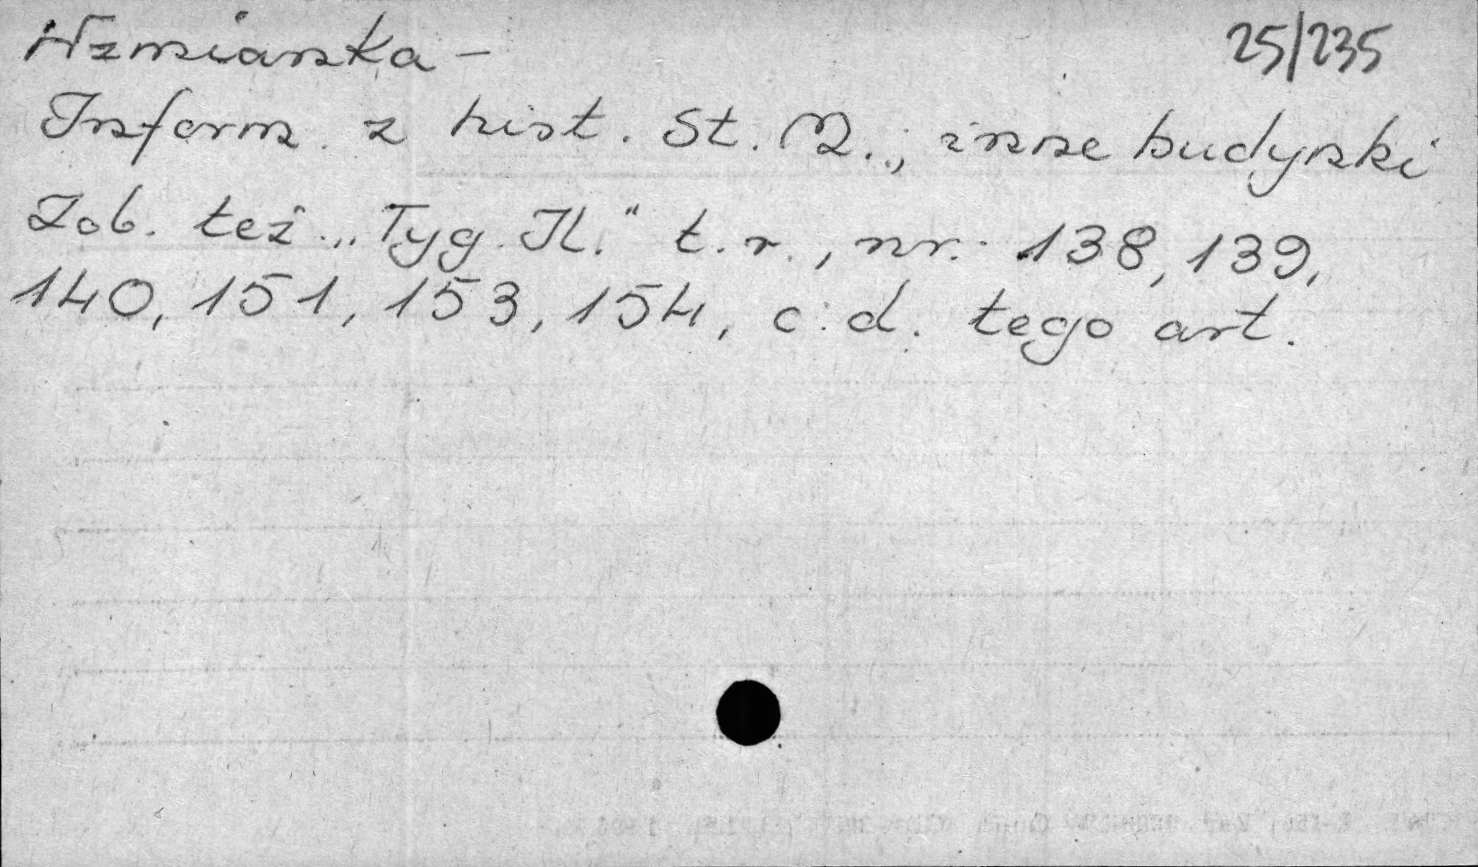 Wzmianka - 25/235
Inform. z hist. St. M., inne budynki
Zob. też „Tyg. Il." t. r., nr. 138, 139,
140, 151, 153, 154, c. d. tego art.